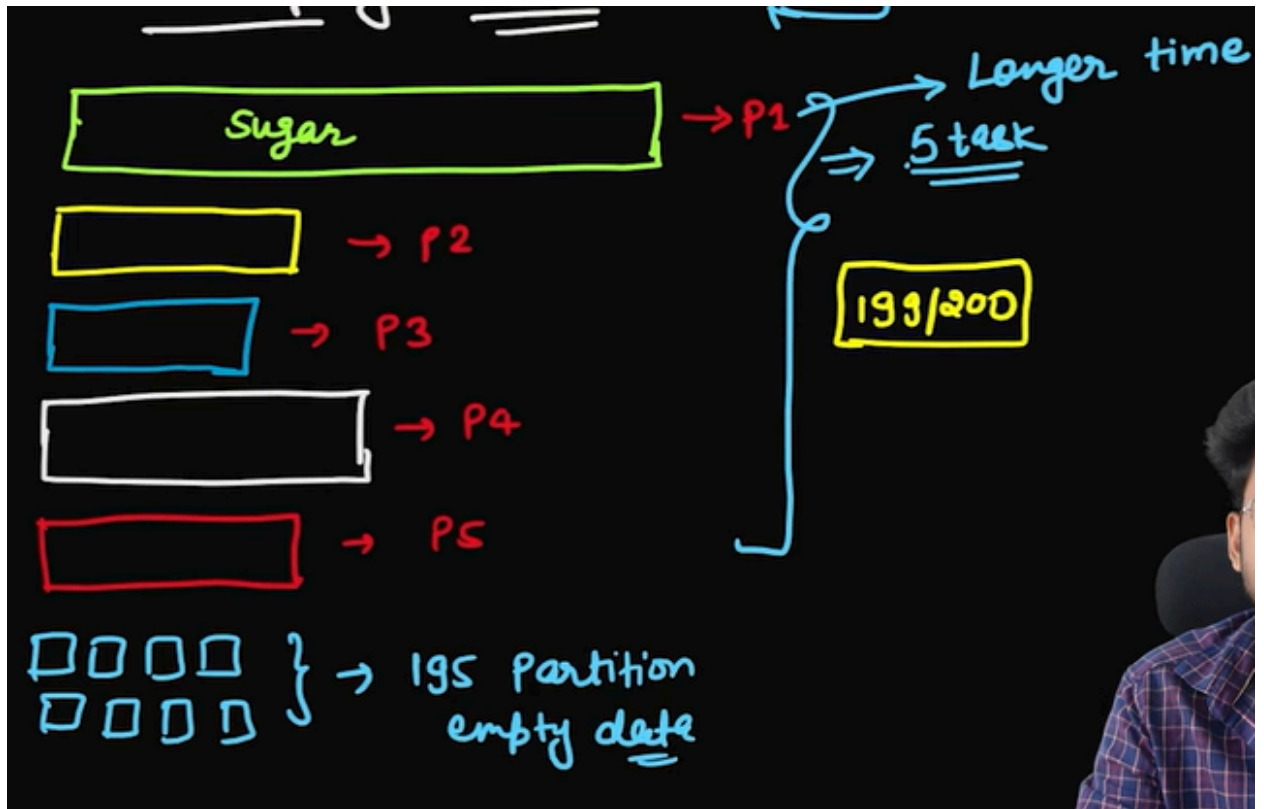 Sugar
→ P1
→ Longer time
⇒ 5 task
→ P2
199/200
→ P3
→ P4
→ P5
→ 195 Partition
empty data